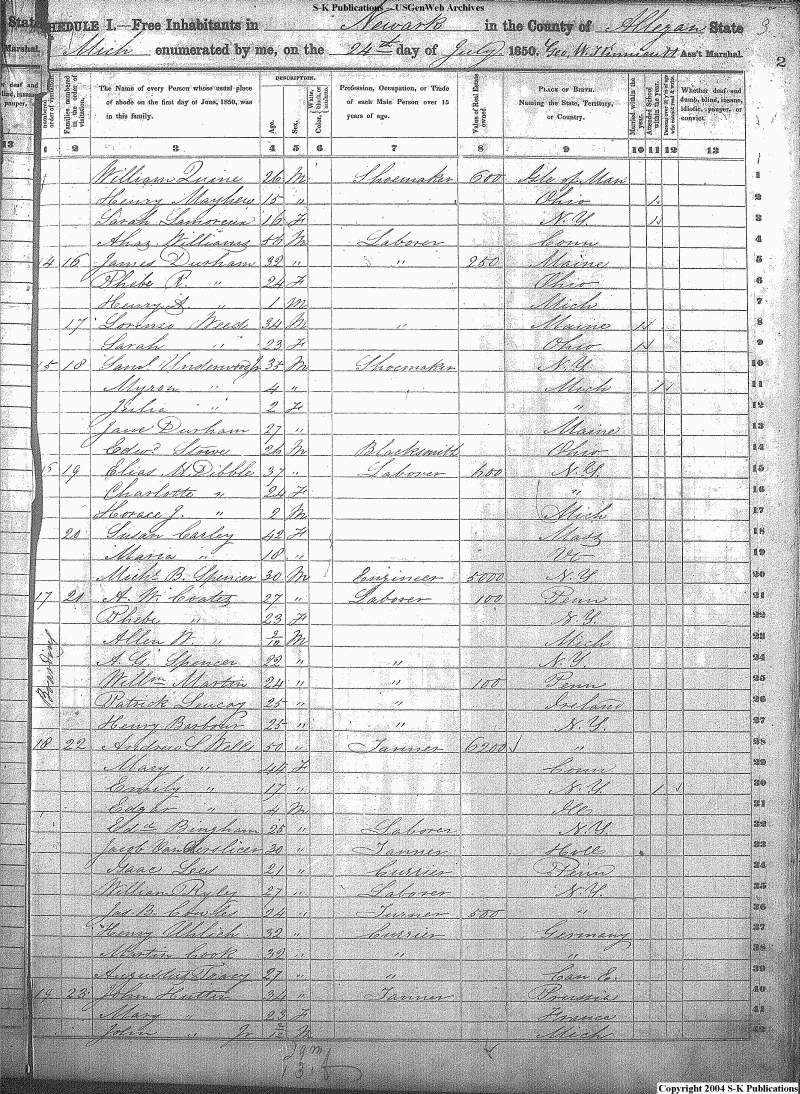 S-K Publications — USGenWeb Archives
SCHEDULE I.—Free Inhabitants in Newark in the County of Allegan State
of Mich enumerated by me, on the 24th day of July 1850. Geo. W. Ass't Marshal.
State
Marshal.
3
2
The Name of every Person whose usual place of abode on the first day of June, 1850, was in this family.
DESCRIPTION.
Age.
Sex.
Color, White, black, or mulatto.
Profession, Occupation, or Trade of each Male Person over 15 years of age.
Value of Real Estate owned.
PLACE OF BIRTH. Naming the State, Territory, or Country.
Married within the year.
Attended School within the year.
Whether deaf and dumb, blind, insane, idiotic, pauper, or convict.
13 1 2 3 4 5 6 7 8 9 10 11 12 13
William Quine 26 M Shoemaker 600 Isle of Man 1
Henry Mayhew 15 " Ohio 1 2
Sarah Lamoreux 16 F N.Y 1 3
Ahaz Williams 56 M Laborer Conn 4
14 16 James Durham 32 " " 250 Maine 5
Phebe R. " 24 F Ohio 6
Henry A " 1 M Mich 7
17 Lorenzo Weed 34 M " Maine 1 8
Sarah " 23 F Ohio 1 9
15 18 Saml Underwood Jr 35 M Shoemaker N.Y. 10
Myron " 4 " Mich 1 11
Julia " 2 F " 12
Jane Durham 27 " Maine 13
Edwd Stowe 26 M Blacksmith Ohio 14
15 19 Elias M Dibble 37 " Laborer 600 N.Y. 15
Charlotte " 24 F " 16
Horace J. " 2 M Mich 17
20 Susan Carley 42 F Mass 18
Maria " 18 " Vt 19
Michl B. Spencer 30 M Enginser 5000 N.Y 20
17 21 A. W. Coates 27 " Laborer 100 Penn 21
Phebe " 23 F N.Y. 22
Allen W. " 2/12 M Mich 23
Boarding
A. G. Spencer 22 " " N.Y 24
Willm Martin 24 " " 100 Penn 25
Patrick 25 " " Ireland 26
Henry Barbour 25 " " N.Y. 27
18 22 Andrew S Wells 50 " Tanner 6200 " 28
Mary " 44 F Conn 29
Emily " 17 " N.Y 1 30
Edgar " 4 M Ills 31
Edd Bingham 25 " Laborer N.Y. 32
Jacob Van 30 " Tanner Holl 33
Isaac Lees 21 " Currier Penn 34
William Ryly 27 " Laborer N.Y. 35
Jas B. Cowles 24 " Turner 500 " 36
Henry Uhlich 32 " Currier Germany 37
Martin Cook 32 " " " 38
Augustus Tracy 27 " " Can E. 39
19 23 John Hutter 34 " Tanner Prussia 40
Mary " 23 F France 41
John " Jr M Mich 42
Copyright 2004 S-K Publications